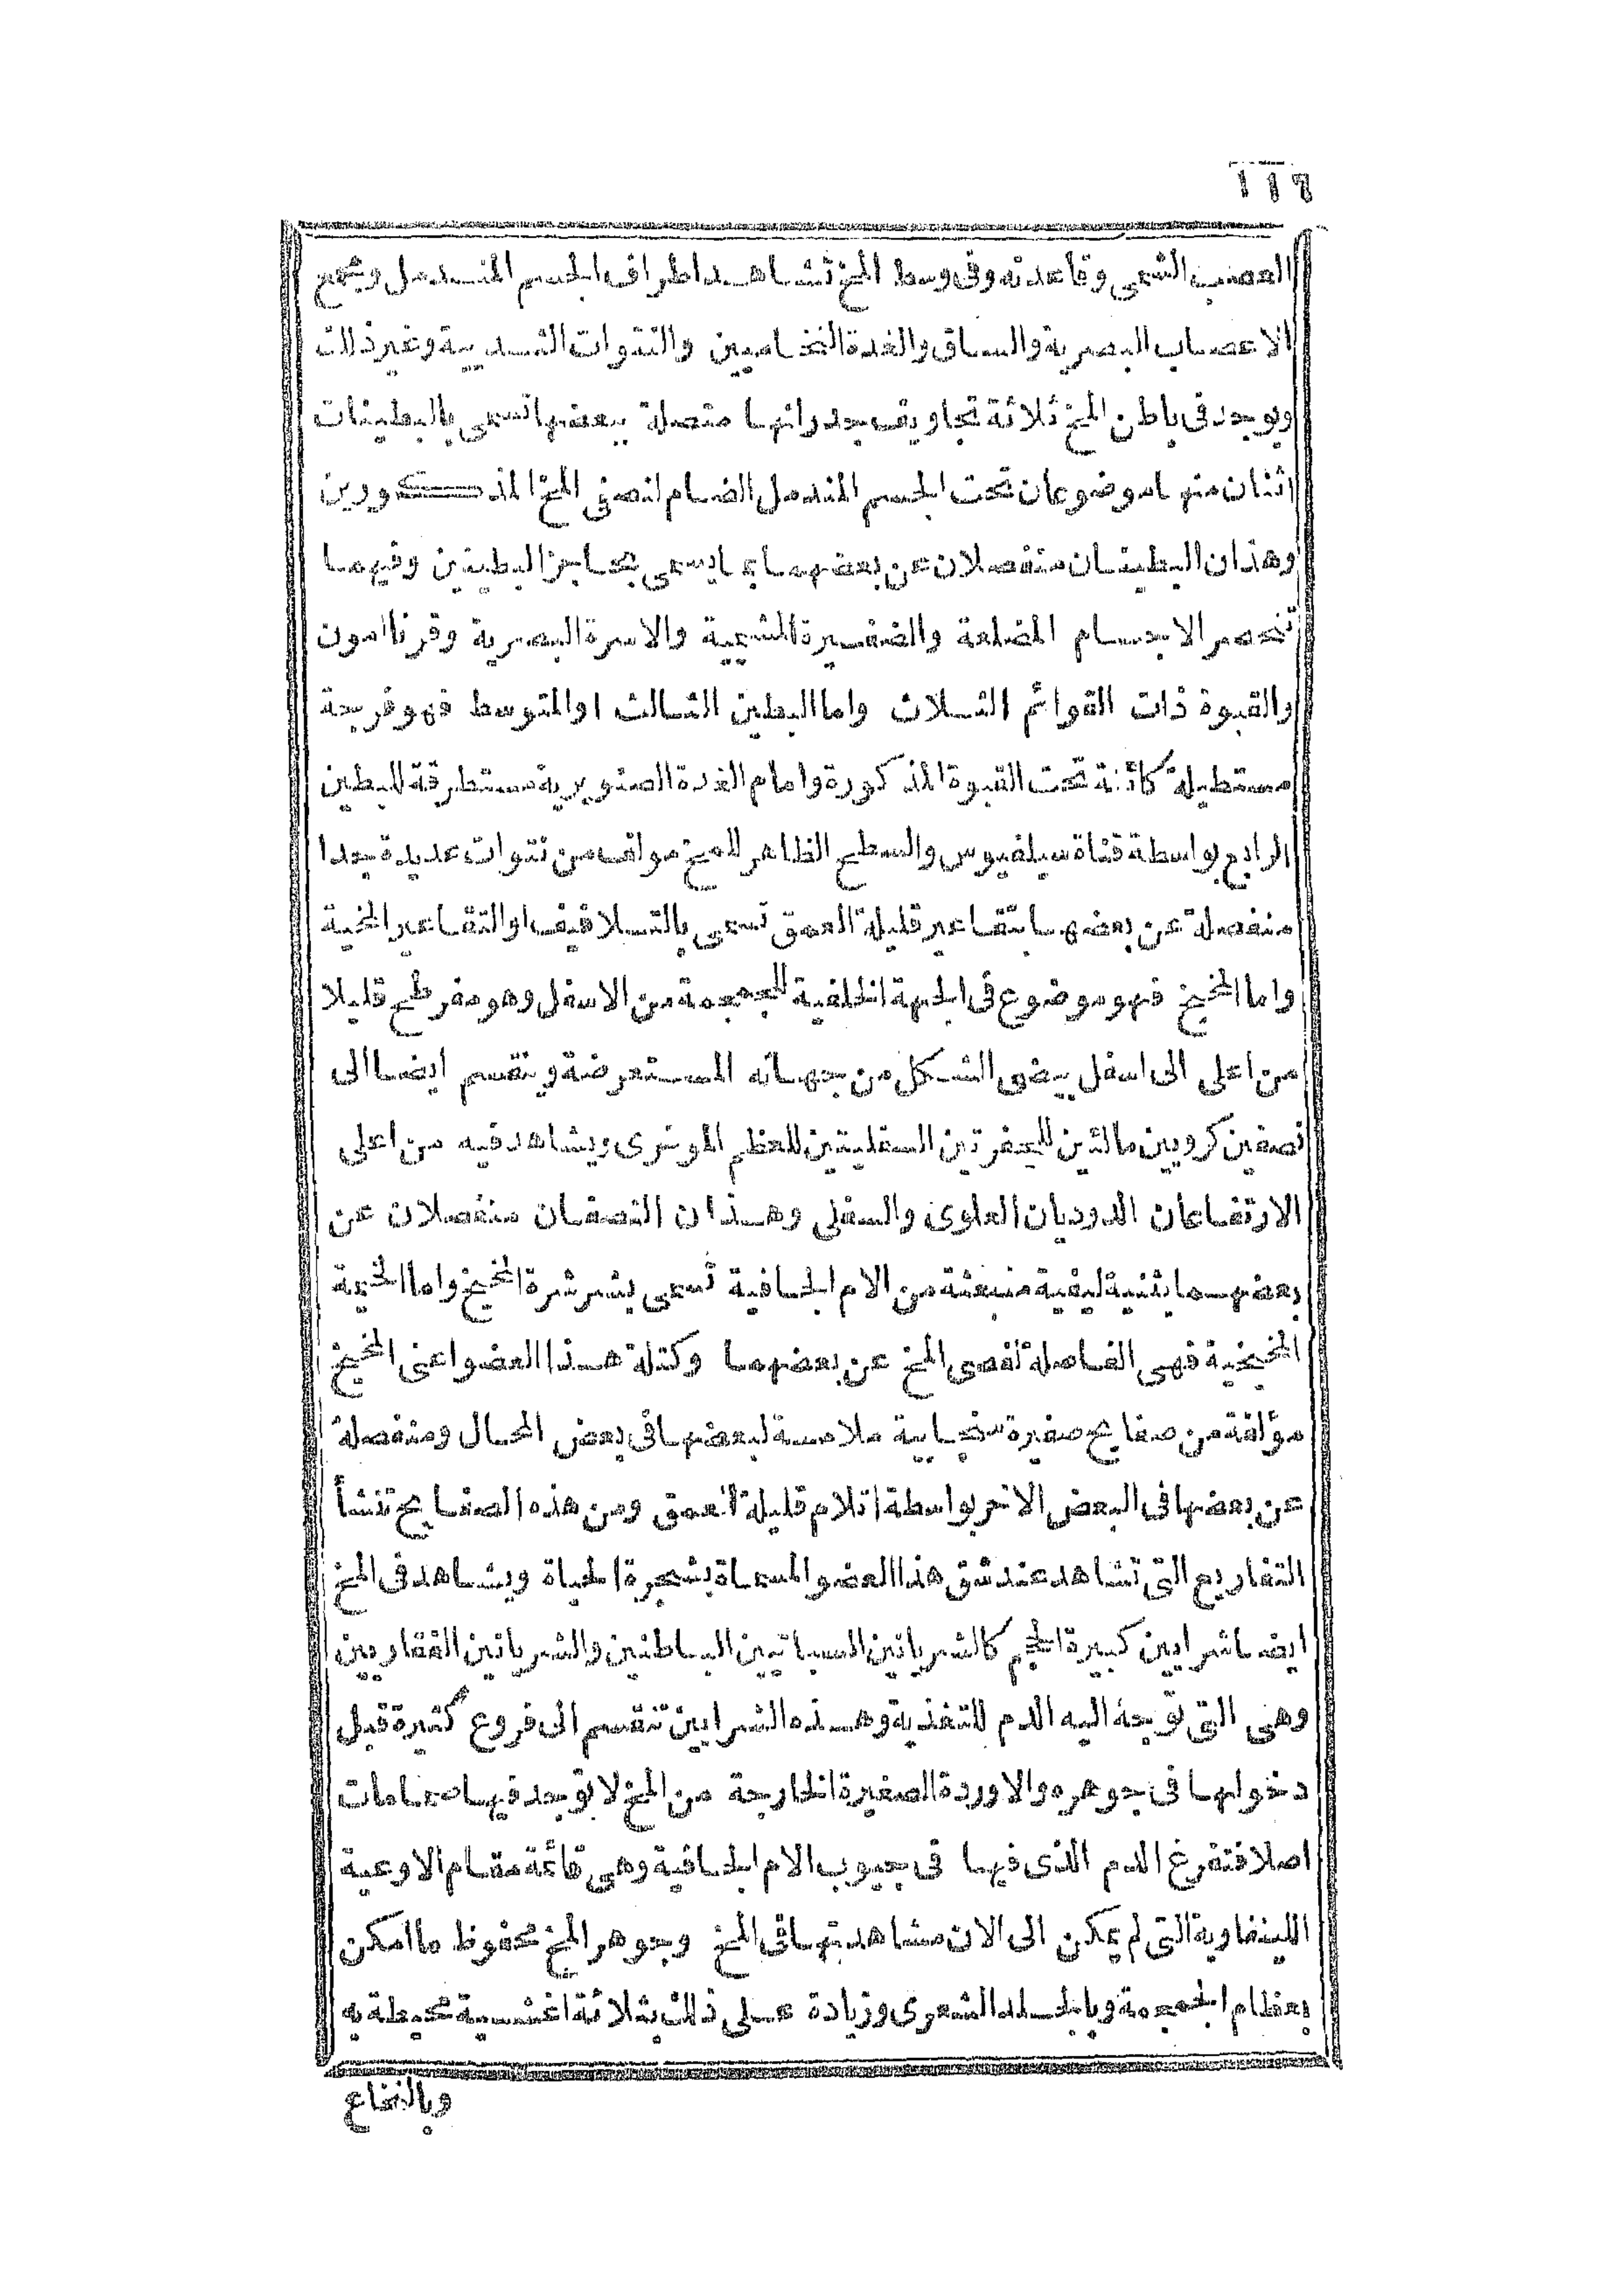 ١١٦
العصب الشمى وقاعدته وفى وسط المخ تشاهد اطراف الجسم المندمل ومجمع
الاعصاب البصرية والساق والغدة النخاميين والنتوات الثديية وغير ذلك
ويوجد فى باطن المخ ثلاثة تجاويف جدرانها متصلة ببعضها تسمى بالبطينات
اثنان منها موضوعان تحت الجسم المندمل الضام لنصفى المخ المذكورين
وهذان البطينان منفصلان عن بعضهما بما يسمى بحاجز البطينين وفيهما
تنحصر الاجسام المضلعة والضفيرة المشيمية والاسرة البصرية وقرنا امون
والقبوة ذات القوائم الثلاث واما البطين الثالث او المتوسط فهو فرجة
مستطيلة كائنة تحت القبوة المذكورة وامام الغدة الصنوبرية مستطرقة للبطين
الرابع بواسطة قناة سيلفيوس والسطح الظاهر للمخ مولف من نتوات عديدة جدا
منفصلة عن بعضها بتقاعير قليلة العمق تسمى بالتلافيف او التقاعير المخية
واما المخيخ فهو موضوع فى الجهة الخلفية للجمجمة من الاسفل وهو مفرطح قليلا
من اعلى الى اسفل بيضى الشكل من جهاته المستعرضة وينقسم ايضا الى
نصفين كرويين مالئين للحفرتين السفليتين للعظم الموخرى ويشاهد فيه من اعلى
الارتفاعان الدوديان العلوى والسفلى وهذان النصفان منفصلان عن
بعضهما بثنية ليفية منبعثة من الام الجافية تسمى بشرشرة المخيخ واما الخيمة
المخيخية فهى الفاصلة لفصى المخ عن بعضهما وكتلة هذا العضو اعنى المخيخ
مؤلفة من صفايح صغيرة سنجابية ملامسة لبعضها فى بعض المحال ومنفصلة
عن بعضها فى البعض الاخر بواسطة اتلام قليلة العمق ومن هذه الصفايح تنشأ
التفاريع التى تشاهد عند شق هذا العضو المسماة بشجرة الحياة ويشاهد فى المخ
ايضا شرايين كبيرة الحجم كالشريانين السباتيين الباطنين والشريانين الفقاريين
وهى التى توجه اليه الدم للتغذية وهذه الشرايين تنقسم الى فروع كثيرة قبل
دخولها فى جوهره والاوردة الصغيرة الخارجة من المخ لا توجد فيها صمامات
اصلا فتفرغ الدم الذى فيها فى جيوب الام الجافية وهى قائمة مقام الاوعية
اللينفاوية التى لم يمكن الى الان مشاهدتها فى المخ وجوهر المخ محفوظ ما امكن
بعظام الجمجمة وبالجلد الشعرى وزيادة على ذلك بثلاثة اغشية محيطة به
وبالنخاع